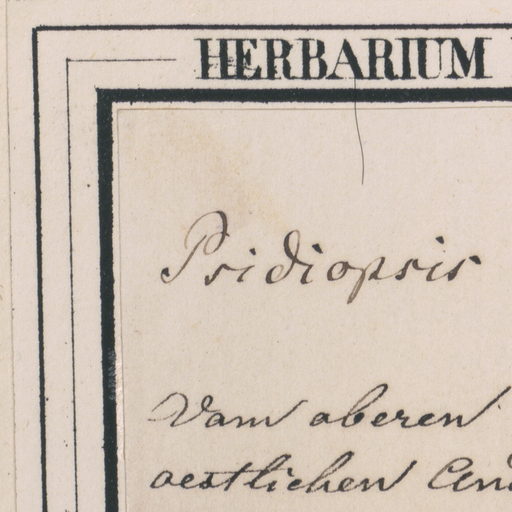 HERBARIUM
Psidiopsis
Vom oberen
oestlichen